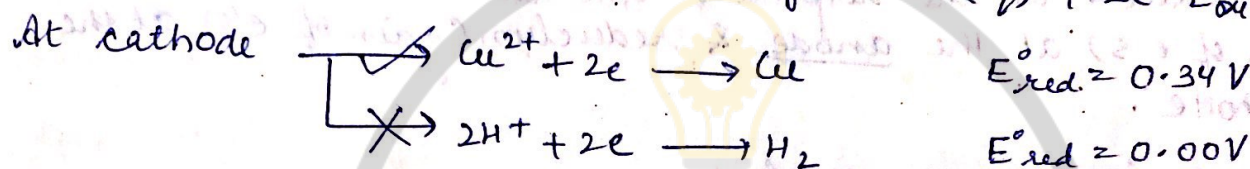 At cathode → Cu²⁺ + 2e → Cu E°red. = 0.34 V
2H⁺ + 2e → H₂ E°red = 0.00V